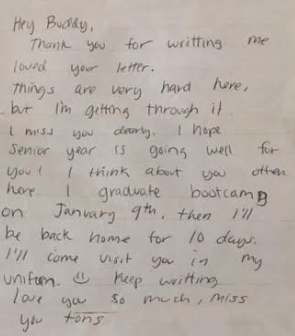 Hey Buddy,
Thank you for writting me
loved your letter.
Things are very hard here,
but I'm getting through it.
I miss you dearly. I hope
senior year is going well for
you! I think about you often
here. I graduate bootcamp
on January 9th, then I'll
be back home for 10 days.
I'll come visit you in my
uniform. ☺ Keep writting.
love you so much, miss
you tons